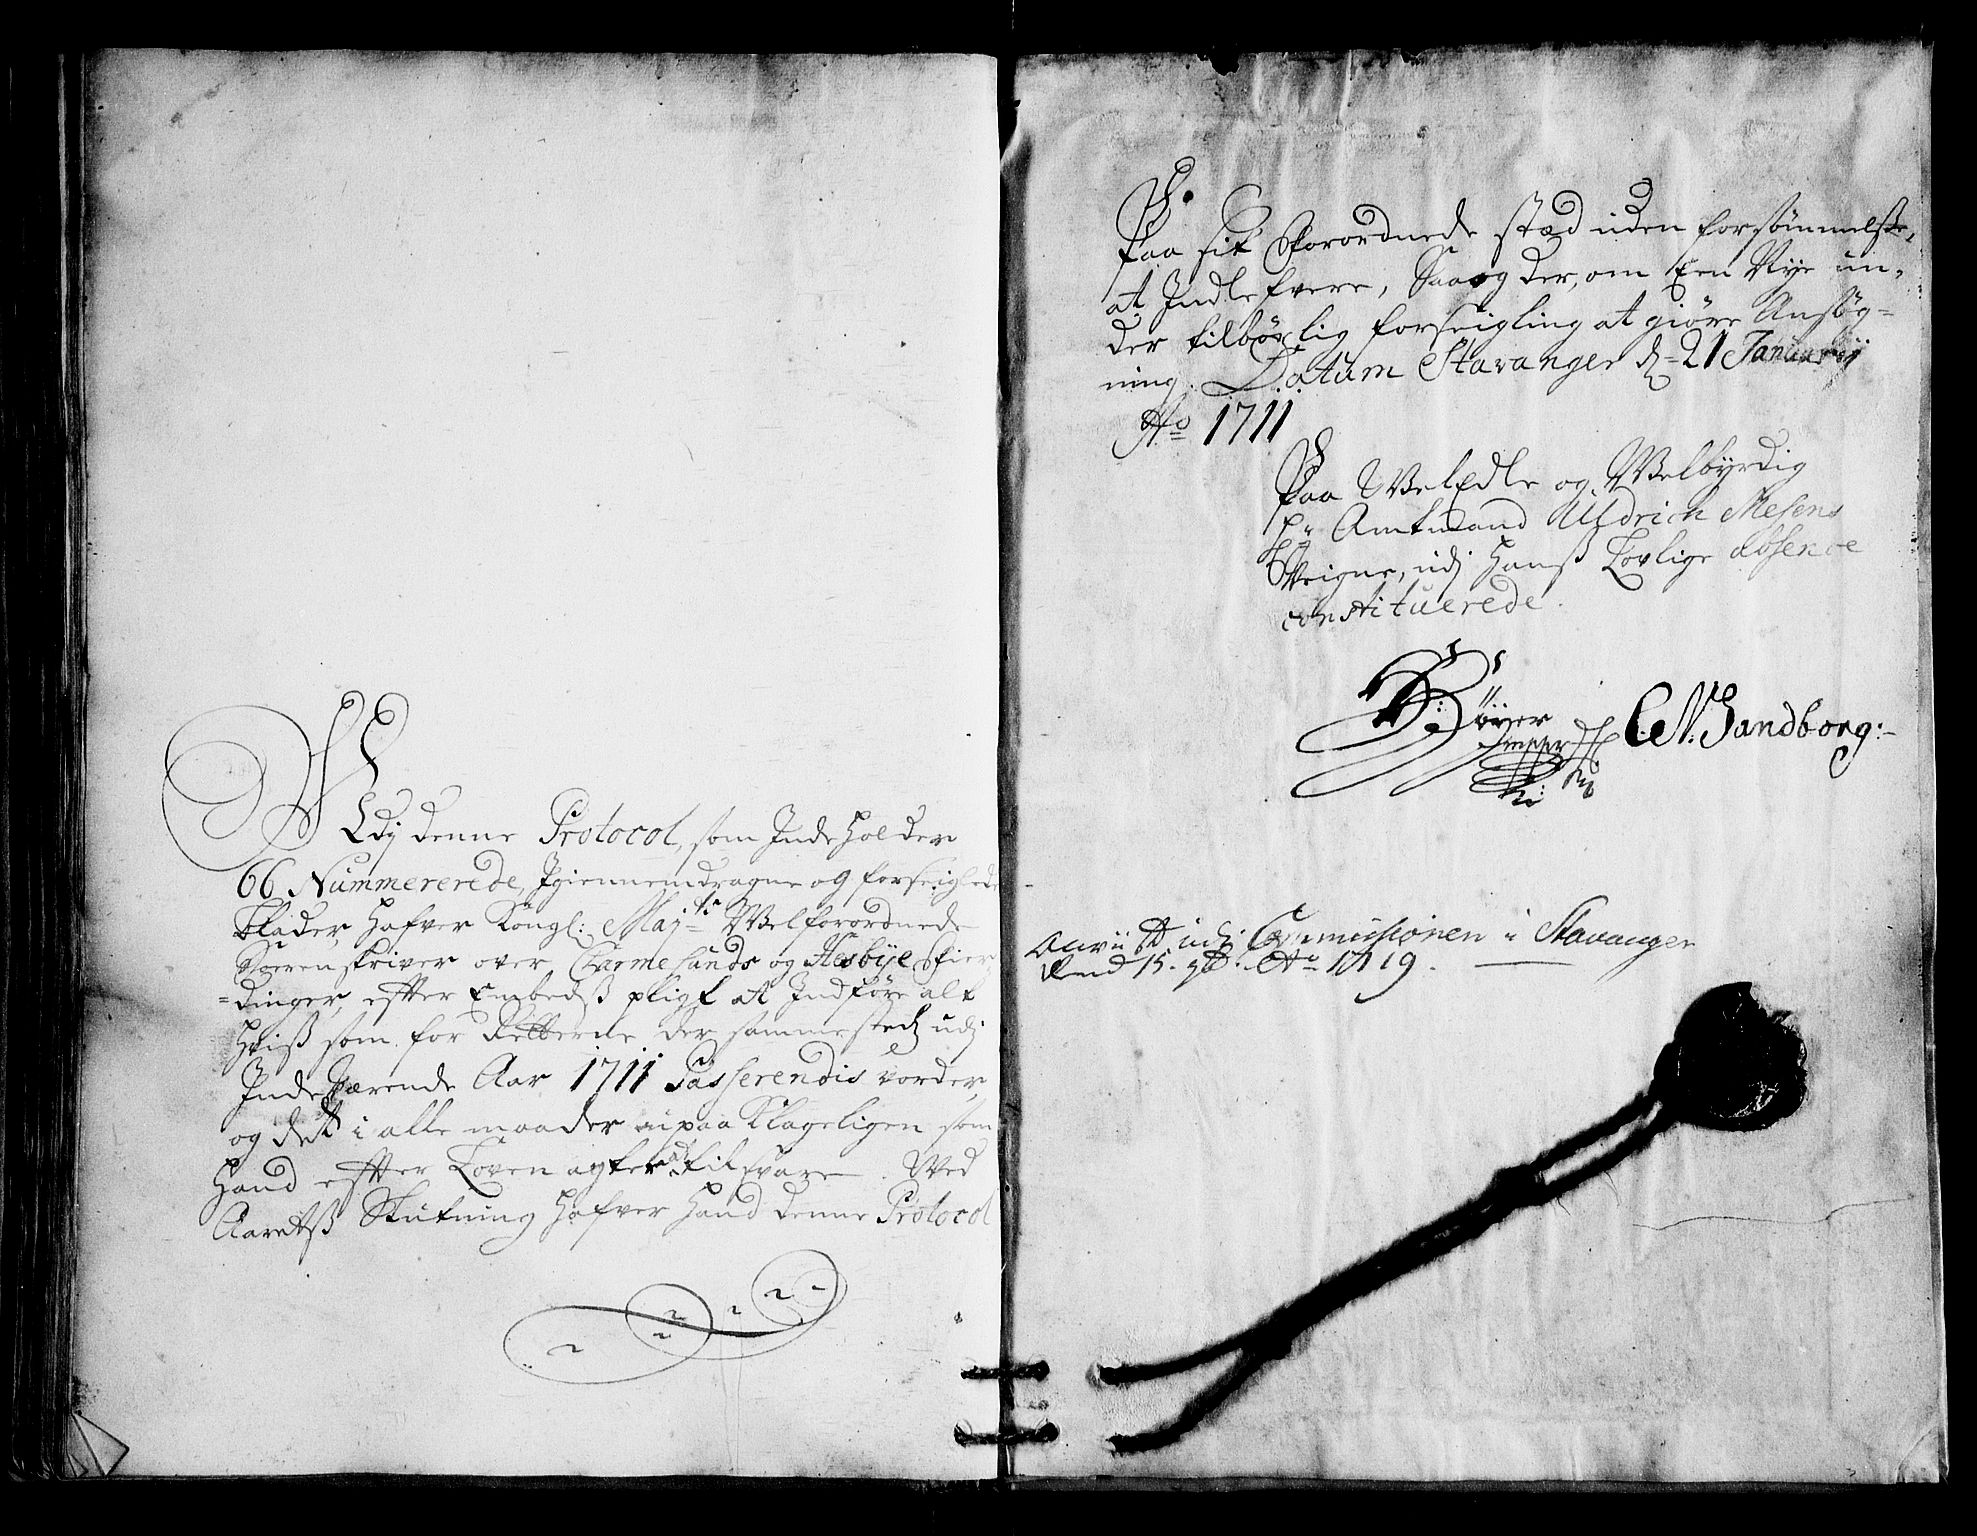 Udj denne Protocol, som Indeholder
66 Nummererede, Igiennemdragne og forseiglede
blader, hafver Kongl: Maj:ts Welforordnede
Sorenskriver over Carmesunds og Hesbye fier-
dinger, effter Embedß pligt at Indføre alt
hviß som for Retterne der sammestedz udj
Indeværende Aar 1711 Passerendis vorder,
og det i alle maader upaaklageligen som
hand effter Loven agter at tilsvare. Ved
Aaretß Slutning hafver hand denne Protocol
Paa sit forordnede stæd uden forsømmelße,
at Indlefvere, Saa og der, om Een Nye un-
der tilbørlig forseigling at giøre Ansøg-
ning. Datum Stavanger d. 21 Januarij
Ao 1711
Paa WelEdle og Welbyrdig
Hr Amtmand Uldrich Mesens
Veigne, udj hanß Lovlige absence
constituerede.
B: Böyer
CN: Sandborg:
anviist udj Commissionen i Stavanger
dend 15. Ao 1719.